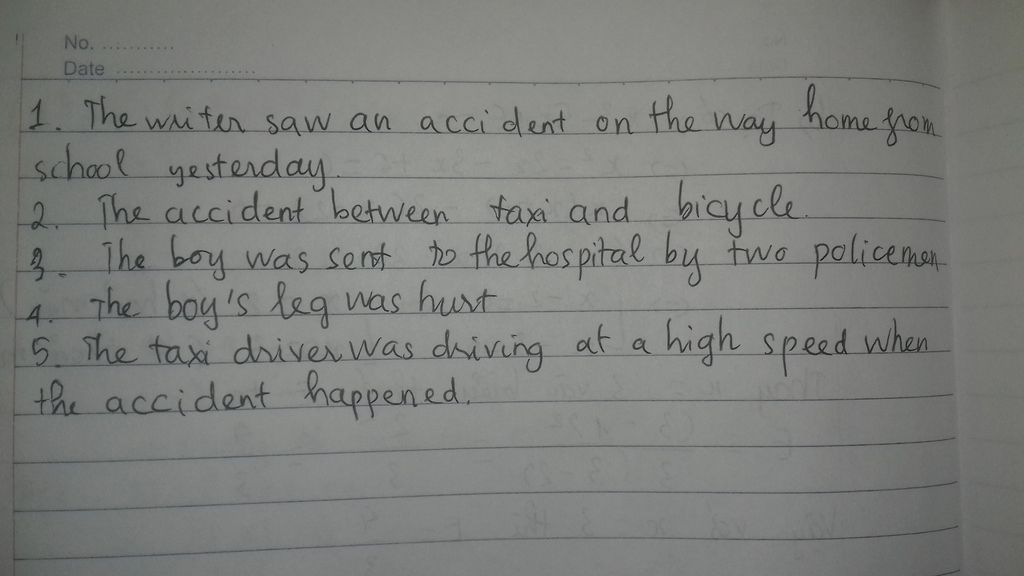 No. ............
Date ......................
1. The writer saw an accident on the way home from
school yesterday.
2. The accident between taxi and bicycle.
3. The boy was sent to the hospital by two policemen
4. The boy's leg was hurt
5. The taxi driver was driving at a high speed when
the accident happened.